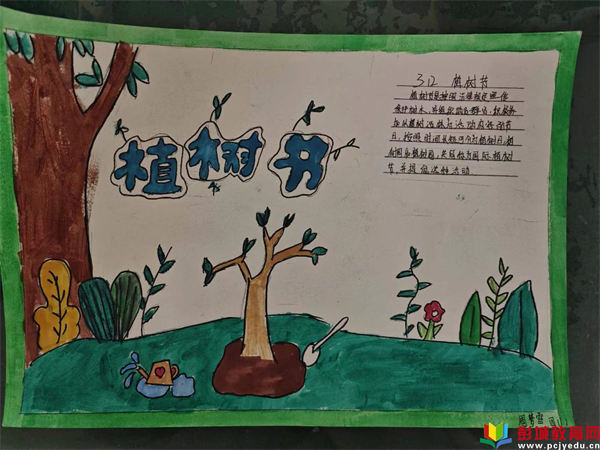 植树节
3.12 植树节
植树节是按照法律规定宣传
保护树木,并组织动员群众,积极参
加以植树造林为活动内容的节
日,按照时间长短可分为植树日,植
树周和植树月,共同称为国际植树
节,并提倡这种活动
彭城教育网
www.pcjyedu.cn